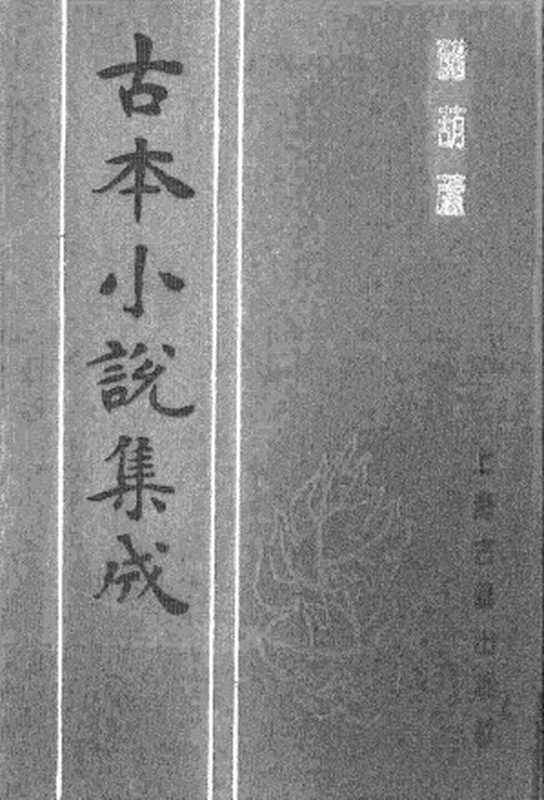 葫蘆
古本小說集成
上海古籍出版社